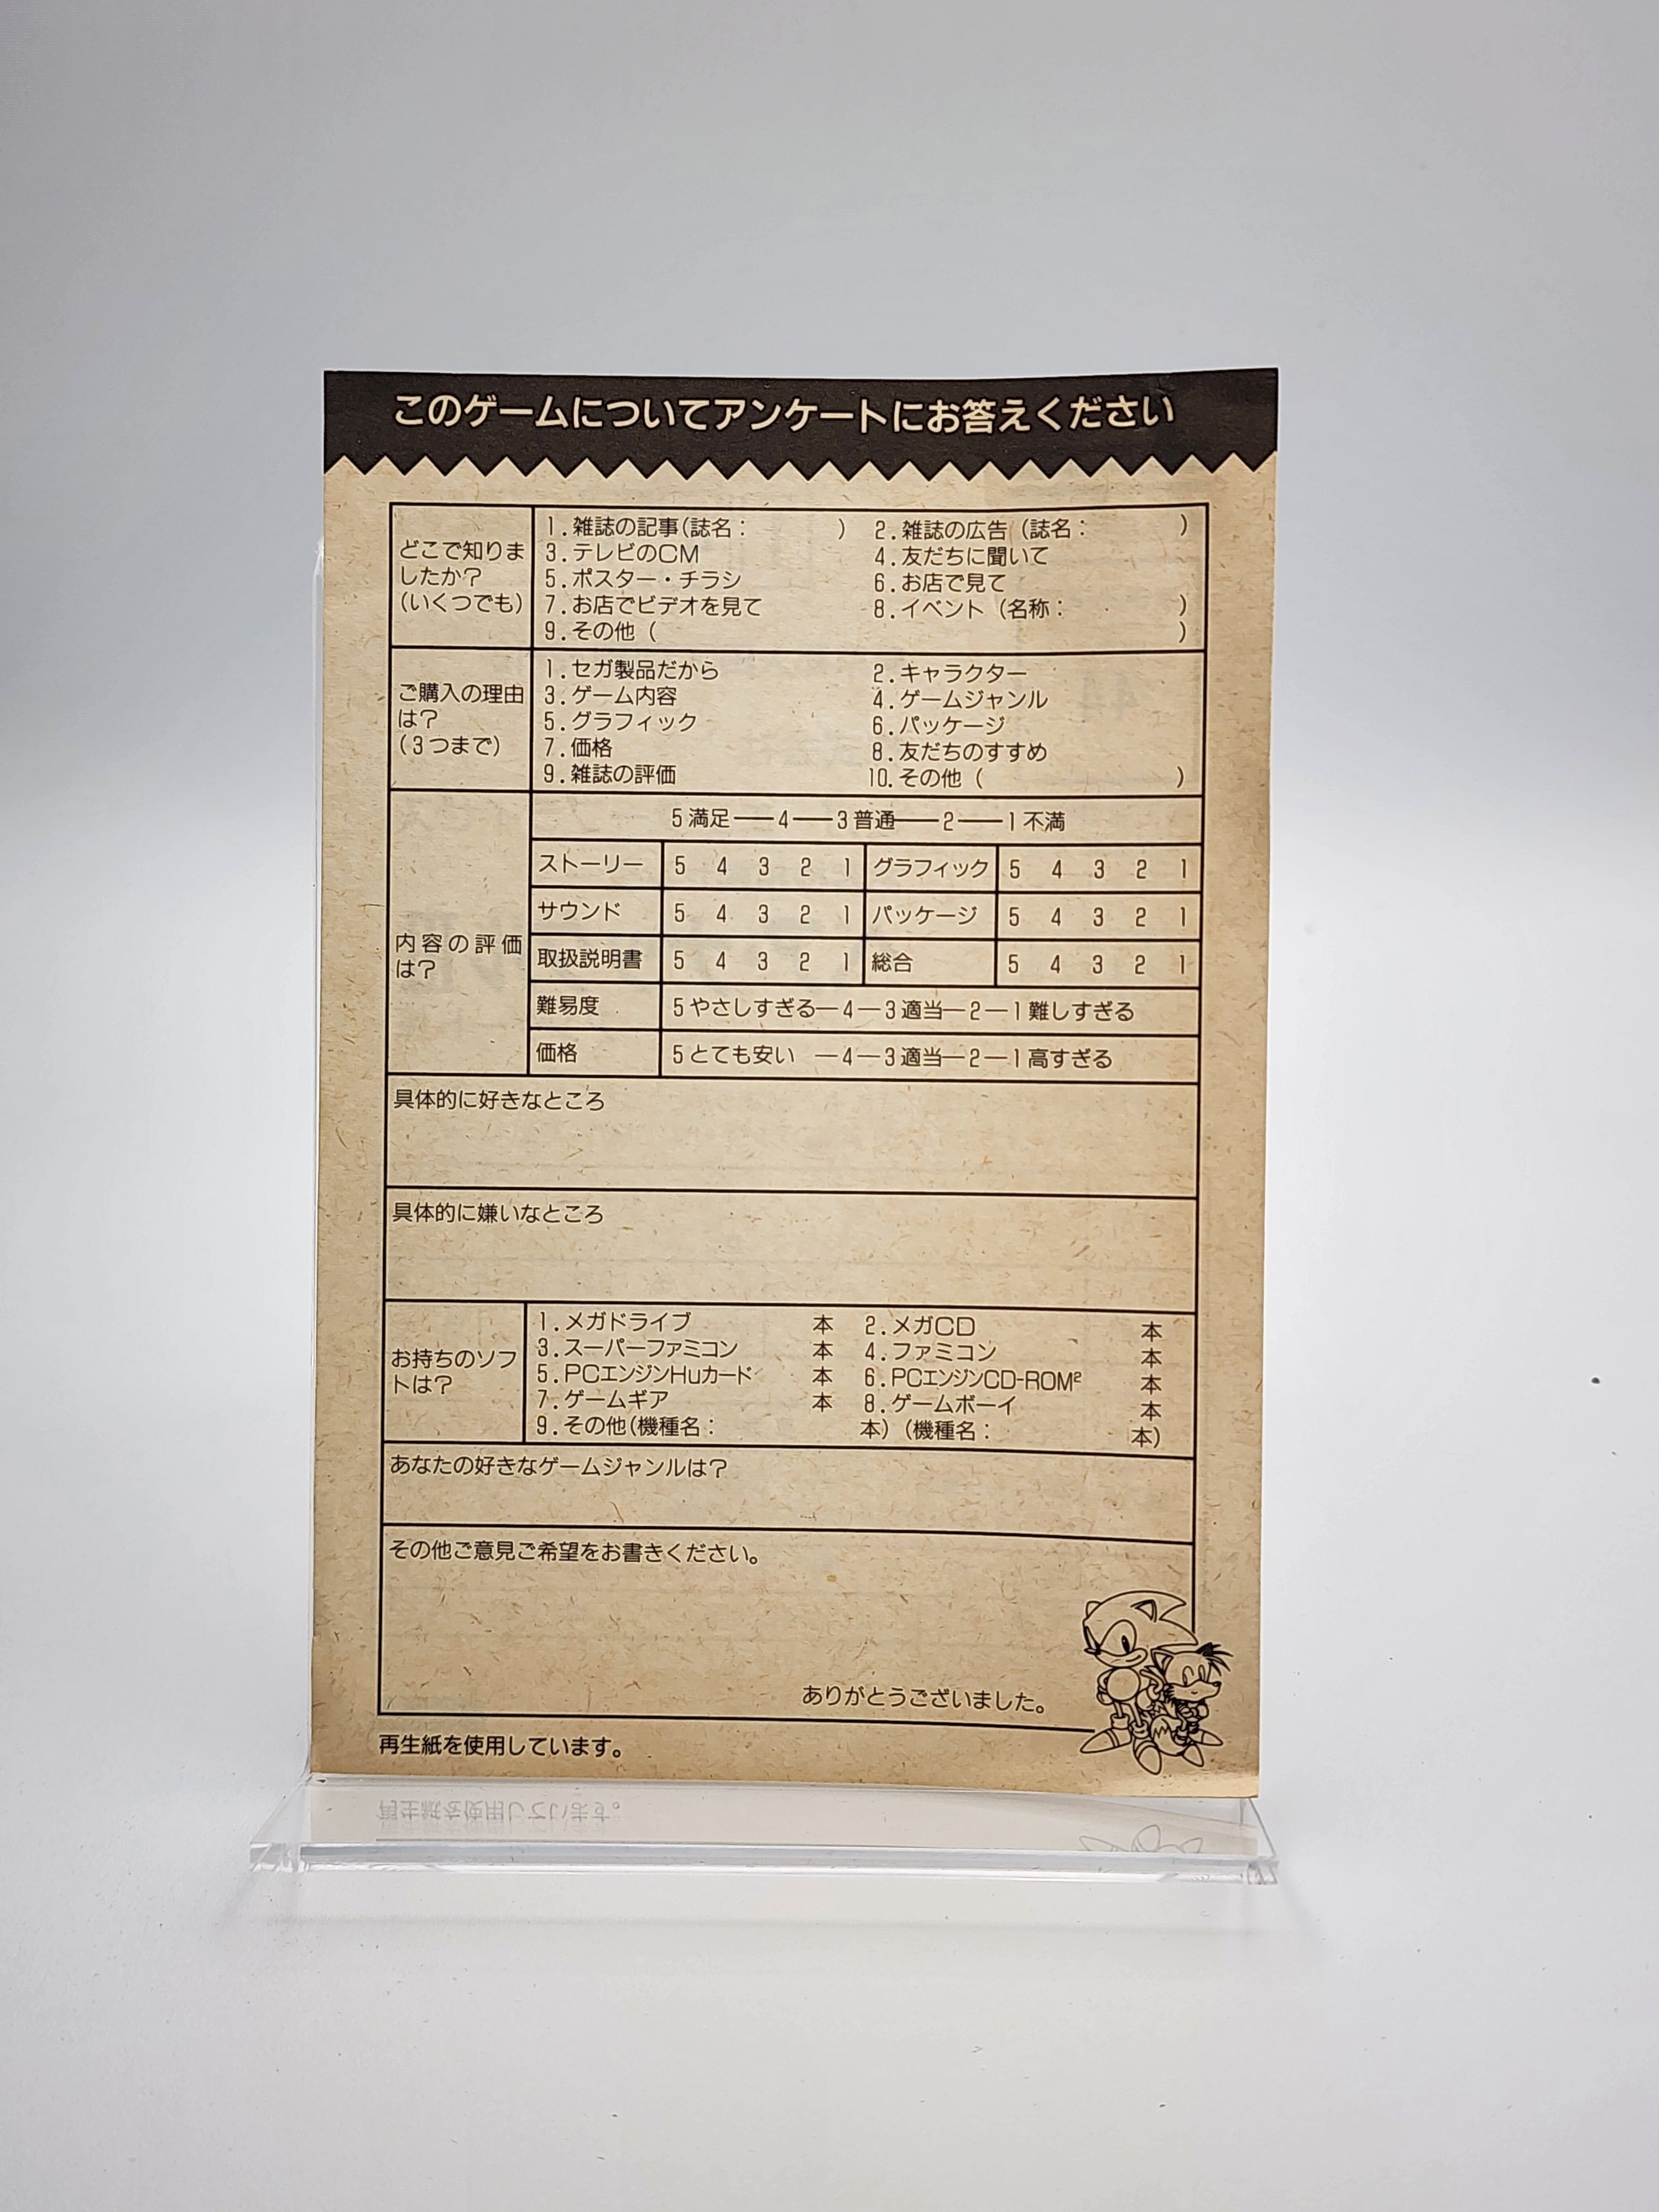 このゲームについてアンケートにお答えください
どこで知りま
したか?
(いくつでも)
1.雑誌の記事(誌名: ) 2.雑誌の広告(誌名: )
3.テレビのCM 4.友だちに聞いて
5.ポスター・チラシ 6.お店で見て
7.お店でビデオを見て 8.イベント(名称: )
9.その他( )
ご購入の理由
は?
(3つまで)
1.セガ製品だから 2.キャラクター
3.ゲーム内容 4.ゲームジャンル
5.グラフィック 6.パッケージ
7.価格 8.友だちのすすめ
9.雑誌の評価 10.その他( )
内容の評価
は?
5満足――4――3普通――2――1不満
ストーリー 5 4 3 2 1 グラフィック 5 4 3 2 1
サウンド 5 4 3 2 1 パッケージ 5 4 3 2 1
取扱説明書 5 4 3 2 1 総合 5 4 3 2 1
難易度 5やさしすぎる―4―3適当―2―1難しすぎる
価格 5とても安い ―4―3適当―2―1高すぎる
具体的に好きなところ
具体的に嫌いなところ
お持ちのソフ
トは?
1.メガドライブ 本 2.メガCD 本
3.スーパーファミコン 本 4.ファミコン 本
5.PCエンジンHuカード 本 6.PCエンジンCD-ROM² 本
7.ゲームギア 本 8.ゲームボーイ 本
9.その他(機種名: 本)(機種名: 本)
あなたの好きなゲームジャンルは?
その他ご意見ご希望をお書きください。
ありがとうございました。
再生紙を使用しています。